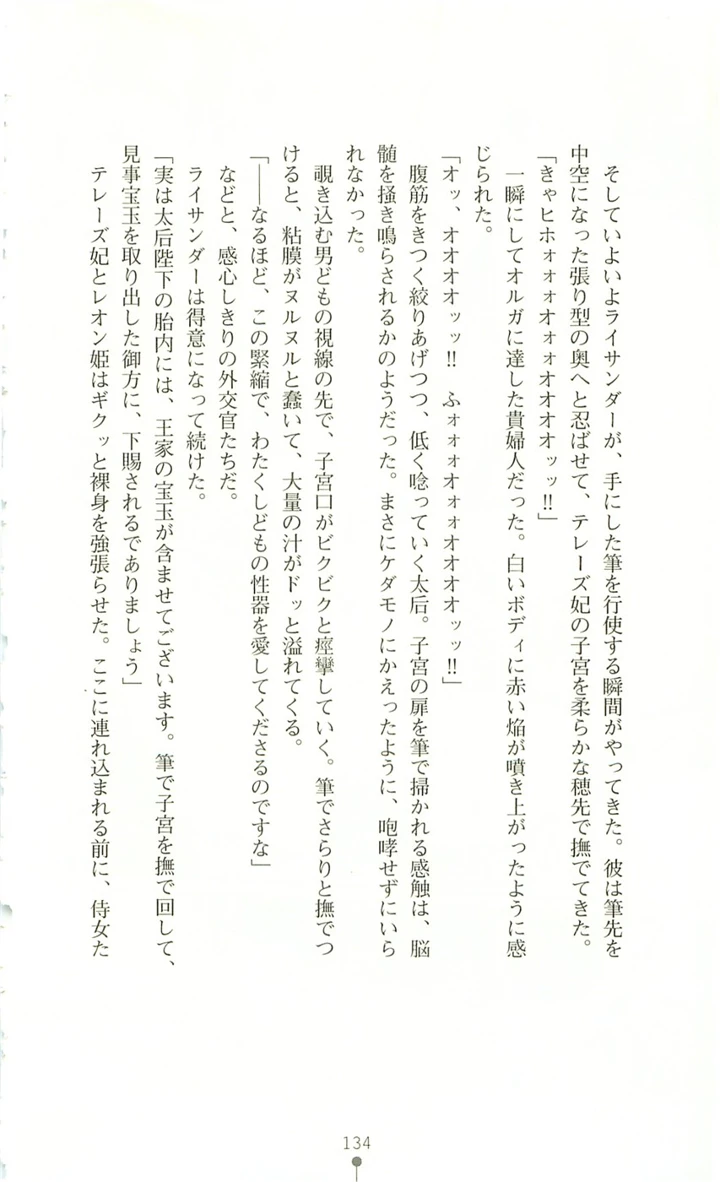 そしていよいよライサンダーが、手にした筆を行使する瞬間がやってきた。彼は筆先を
中空になった張り型の奥へと忍ばせて、テレーズ妃の子宮を柔らかな穂先で撫でてきた。
「きゃヒホォォォオォォオオオオッッ!!」
一瞬にしてオルガに達した貴婦人だった。白いボディに赤い焔が噴き上がったように感
じられた。
「オッ、オオオオッッ!!　ふォォォオォォオオオオッッ!!」
腹筋をきつく絞りあげつつ、低く唸っていく太后。子宮の扉を筆で掃かれる感触は、脳
髄を掻き鳴らされるかのようだった。まさにケダモノにかえったように、咆哮せずにいら
れなかった。
覗き込む男どもの視線の先で、子宮口がビクビクと痙攣していく。筆でさらりと撫でつ
けると、粘膜がヌルヌルと蠢いて、大量の汁がドッと溢れてくる。
「――なるほど、この緊縮で、わたくしどもの性器を愛してくださるのですな」
などと、感心しきりの外交官たちだ。
ライサンダーは得意になって続けた。
「実は太后陛下の胎内には、王家の宝玉が含ませてございます。筆で子宮を撫で回して、
見事宝玉を取り出した御方に、下賜されるでありましょう」
テレーズ妃とレオン姫はギクッと裸身を強張らせた。ここに連れ込まれる前に、侍女た
134